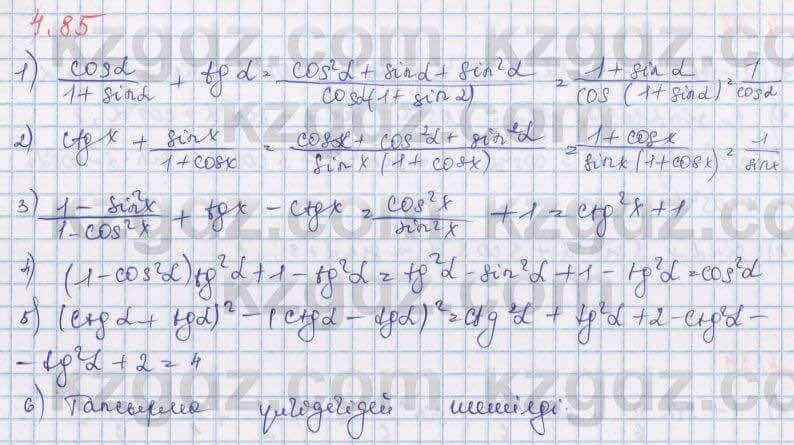 4.85
1) cosα / (1 + sinα) + tgα = (cos²α + sinα + sin²α) / (cosα(1 + sinα)) = (1 + sinα) / (cos(1 + sinα)) = 1 / cosα
2) ctgx + sinx / (1 + cosx) = (cosx + cos²α + sin²α) / (sinx(1 + cosx)) = (1 + cosx) / (sinx(1 + cosx)) = 1 / sinx
3) (1 - sin²x) / (1 - cos²x) + tgx - ctgx = cos²x / sin²x + 1 = ctg²x + 1
4) (1 - cos²α)tg²α + 1 - tg²α = tg²α - sin²α + 1 - tg²α = cos²α
5) (ctgα + tgα)² - (ctgα - tgα)² = ctg²α + tg²α + 2 - ctg²α -
- tg²α + 2 = 4
6) Тапсырма үлгідегідей шешілді.
kzgdz.com